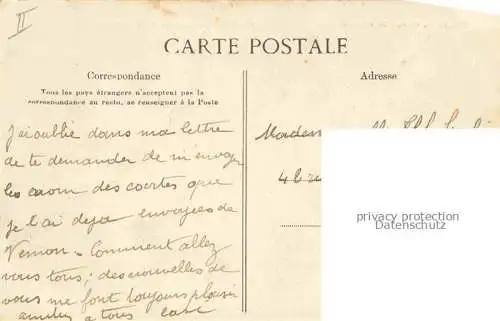 II
CARTE POSTALE
Correspondance
Adresse
Tous les pays étrangers n'acceptent pas la
correspondance au recto, se renseigner à la Poste
J'ai oublié dans ma lettre
de te demander de m'envoyer
les des cartes que
je t'ai deja envoyées de
Vernon = Comment allez
vous tous; des nouvelles de
vous me font toujours plaisir
amitiés a tous
4
privacy protection
Datenschutz